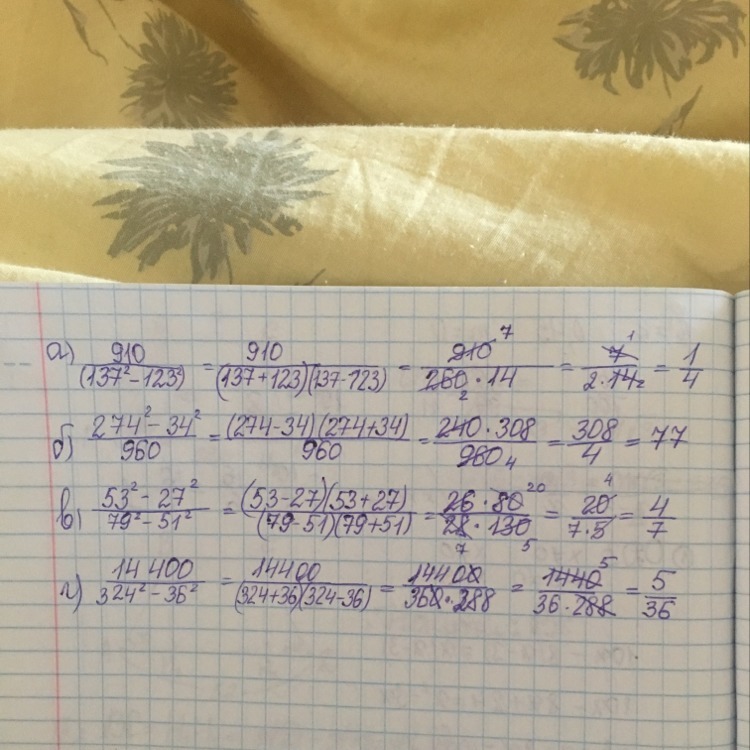 а) 910/(137² − 123²) = 910/(137+123)(137-123) = 910 7/260 2 · 14 = 7 1/2 · 14 2 = 1/4
б) 274² − 34²/960 = (274-34)(274+34)/960 = 240 · 308/960 4 = 308/4 = 77
в) 53² − 27²/79² − 51² = (53-27)(53+27)/(79-51)(79+51) = 26 · 80 20/28 7 · 130 5 = 20 4/7 · 5 = 4/7
г) 14 400/324² − 36² = 14400/(324+36)(324-36) = 14400/360 · 288 = 1440 5/36 · 288 = 5/36